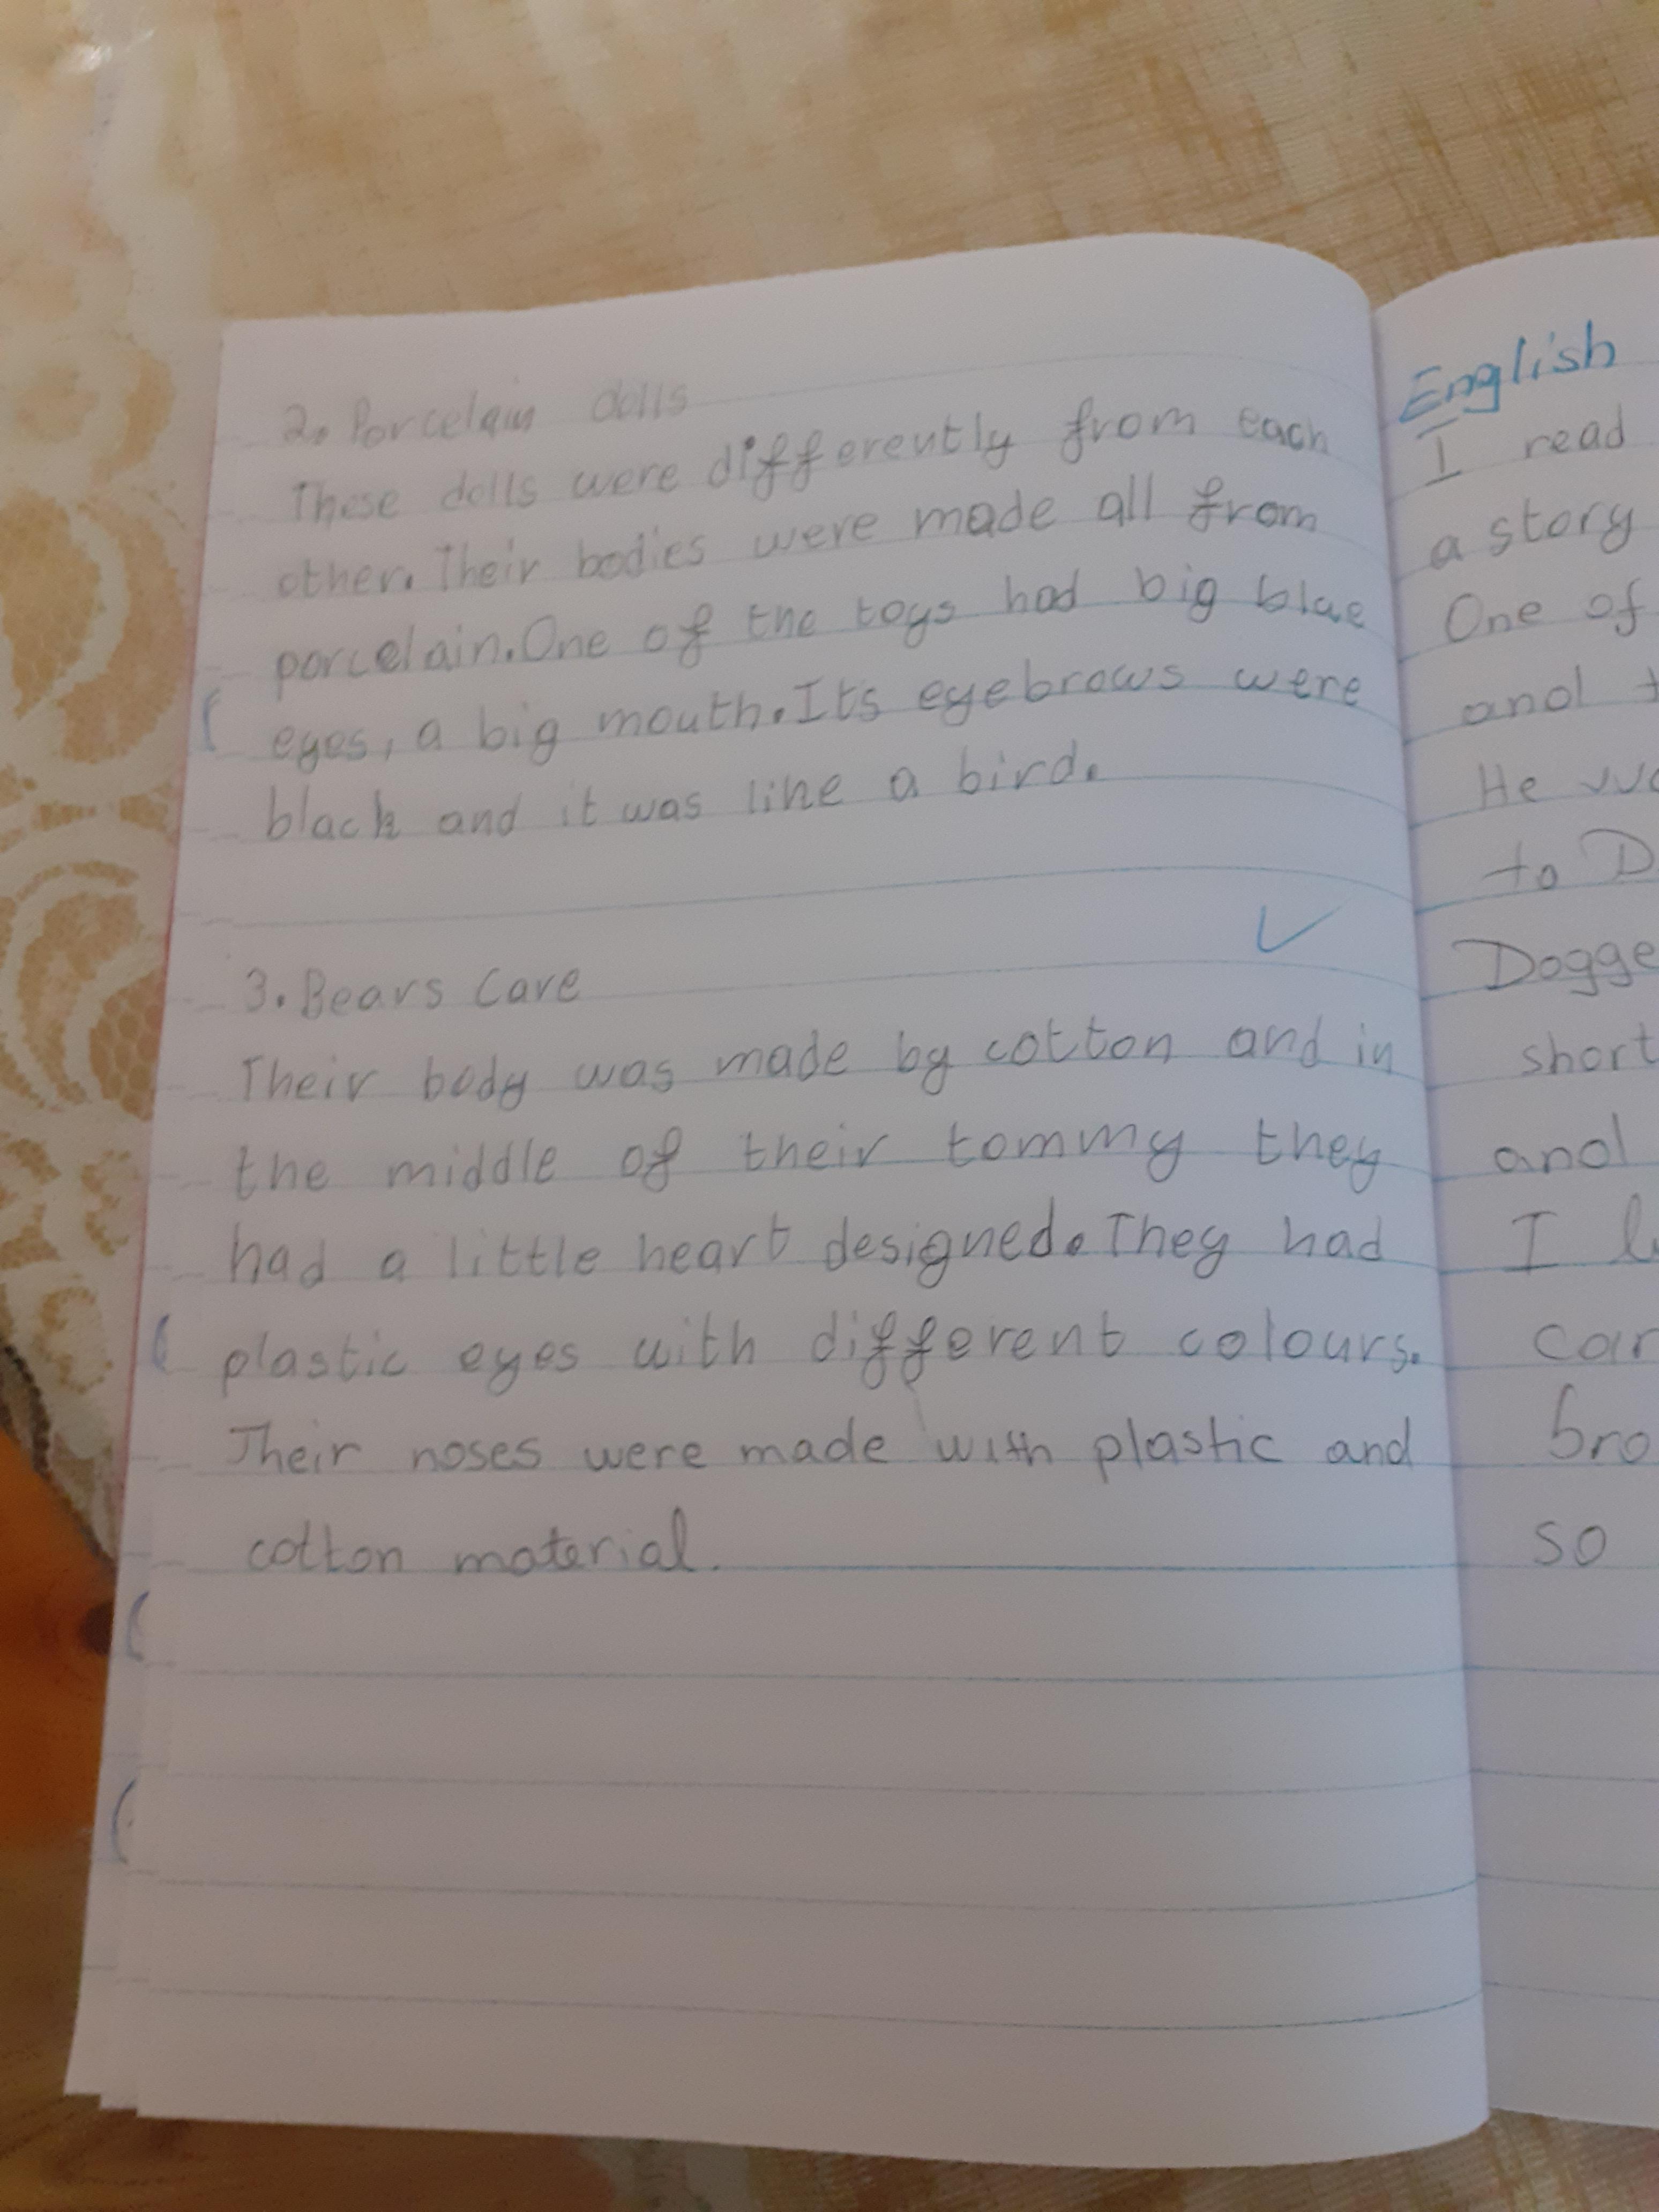 2. Porcelain dolls
These dolls were differently from each
other. Their bodies were made all from
porcelain. One of the toys had big blue
eyes, a big mouth. Its eyebrows were
black and it was like a bird.
3. Bears Care
Their body was made by cotton and in
the middle of their tommy they
had a little heart designed. They had
plastic eyes with different colours.
Their noses were made with plastic and
cotton material.
English
I read
a story
One of
and
He
to
Dogge
short
and
I
bro
so